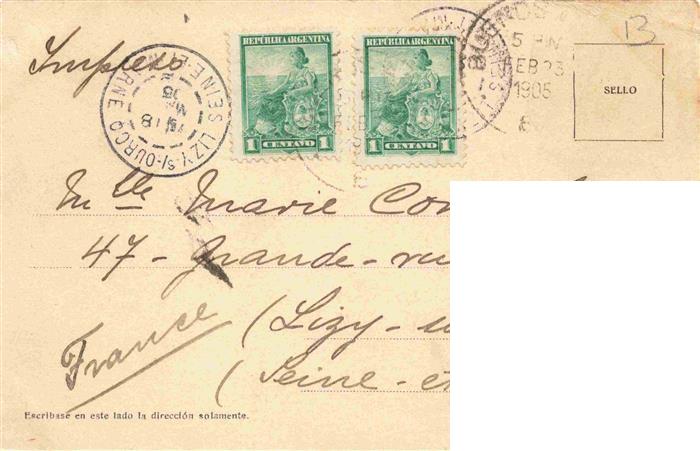 Impreso
REPÚBLICA ARGENTINA
1 CENTAVO 1
REPÚBLICA ARGENTINA
1 CENTAVO 1
LIZY S/-OURCQ
SEINE-ET-MARNE
BUENOS
5 PM
FEB 23
1905
SELLO
13
Mlle Marie
47 - Grande-
(Lizy-
(Seine-et
France
Escríbase en este lado la dirección solamente.